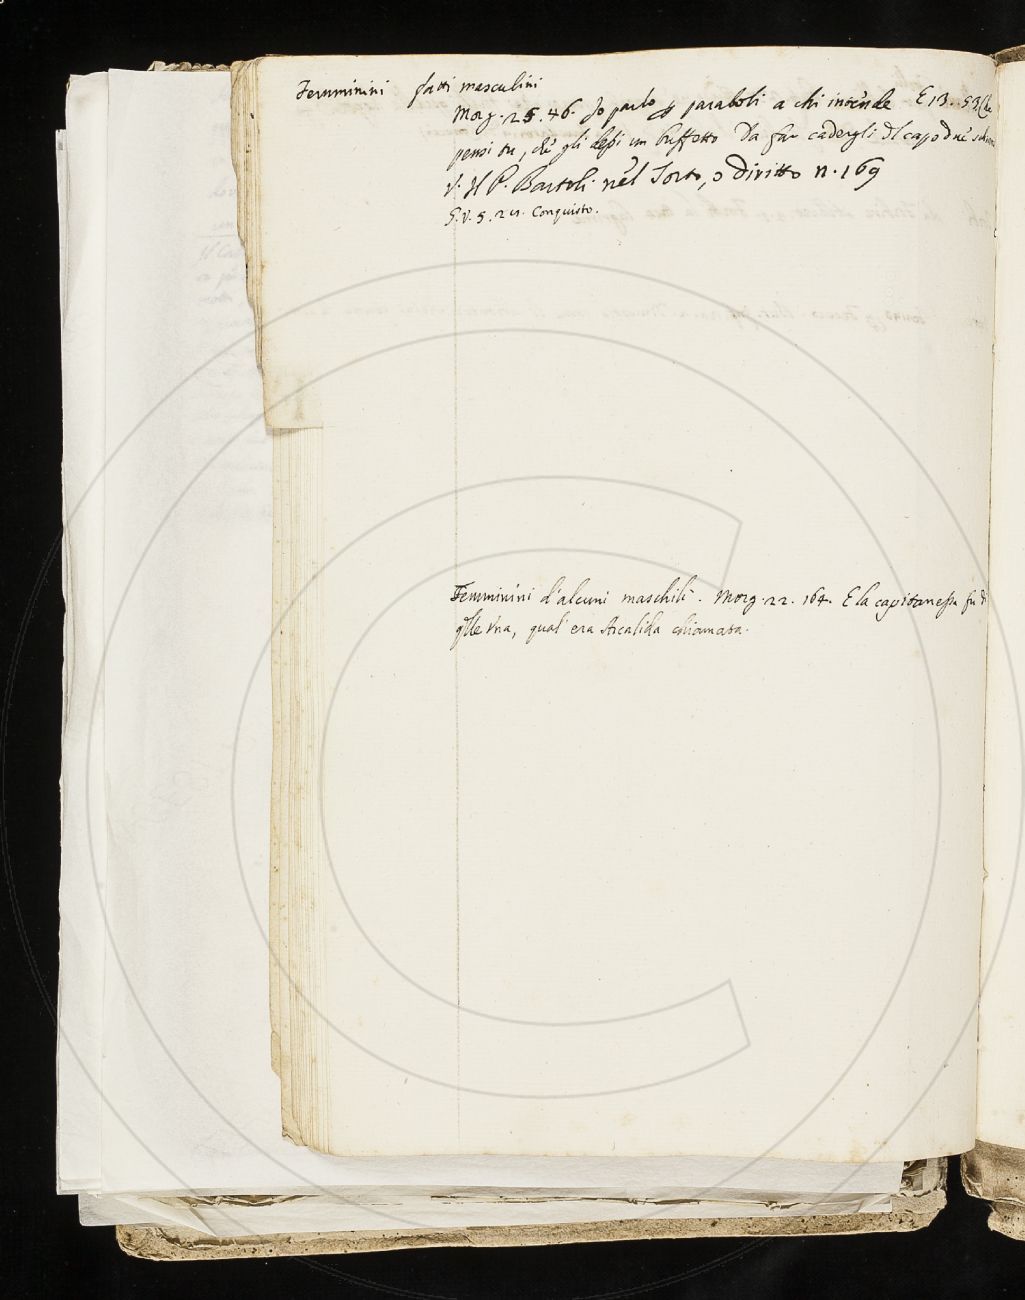 Femminini fatti masculini
Morg. 25. 46. Io parlo p paraboli a chi intende E 13. 53. Che
pensi tu, ch'è gli dessi un buffetto Da far cadergli il capo
V. Il P. Bartoli nel Torto, o diritto n. 169
G. V. 5. 24. Conquisto.
Femminini d'alcuni maschili. Morg. 22. 164. E la capitanessa fu di
q̃lle una, qual' era Arcalida chiamata.